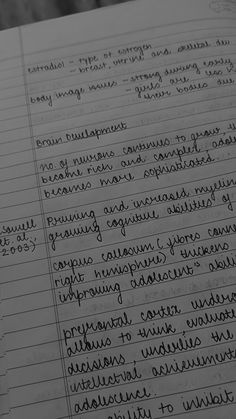 estradiol - type of estrogen
- breast, uterine and skeletal dev
body image issues - strong during early
- girls are less
their bodies due
Brain Development
no. of neurons continues to grow,
become rich and complex, adole
becomes more sophisticated.
Pruning and increased myelin
growing cognitive abilities of
et. al.,
2003)
corpus callosum (fibres conn
right hemisphere) thickens
improving adolescent's abili
prefrontal cortex undergo
allows to think, evaluate
decisions, underlies the
intellectual achievements
adolescence.
ability to inhibit